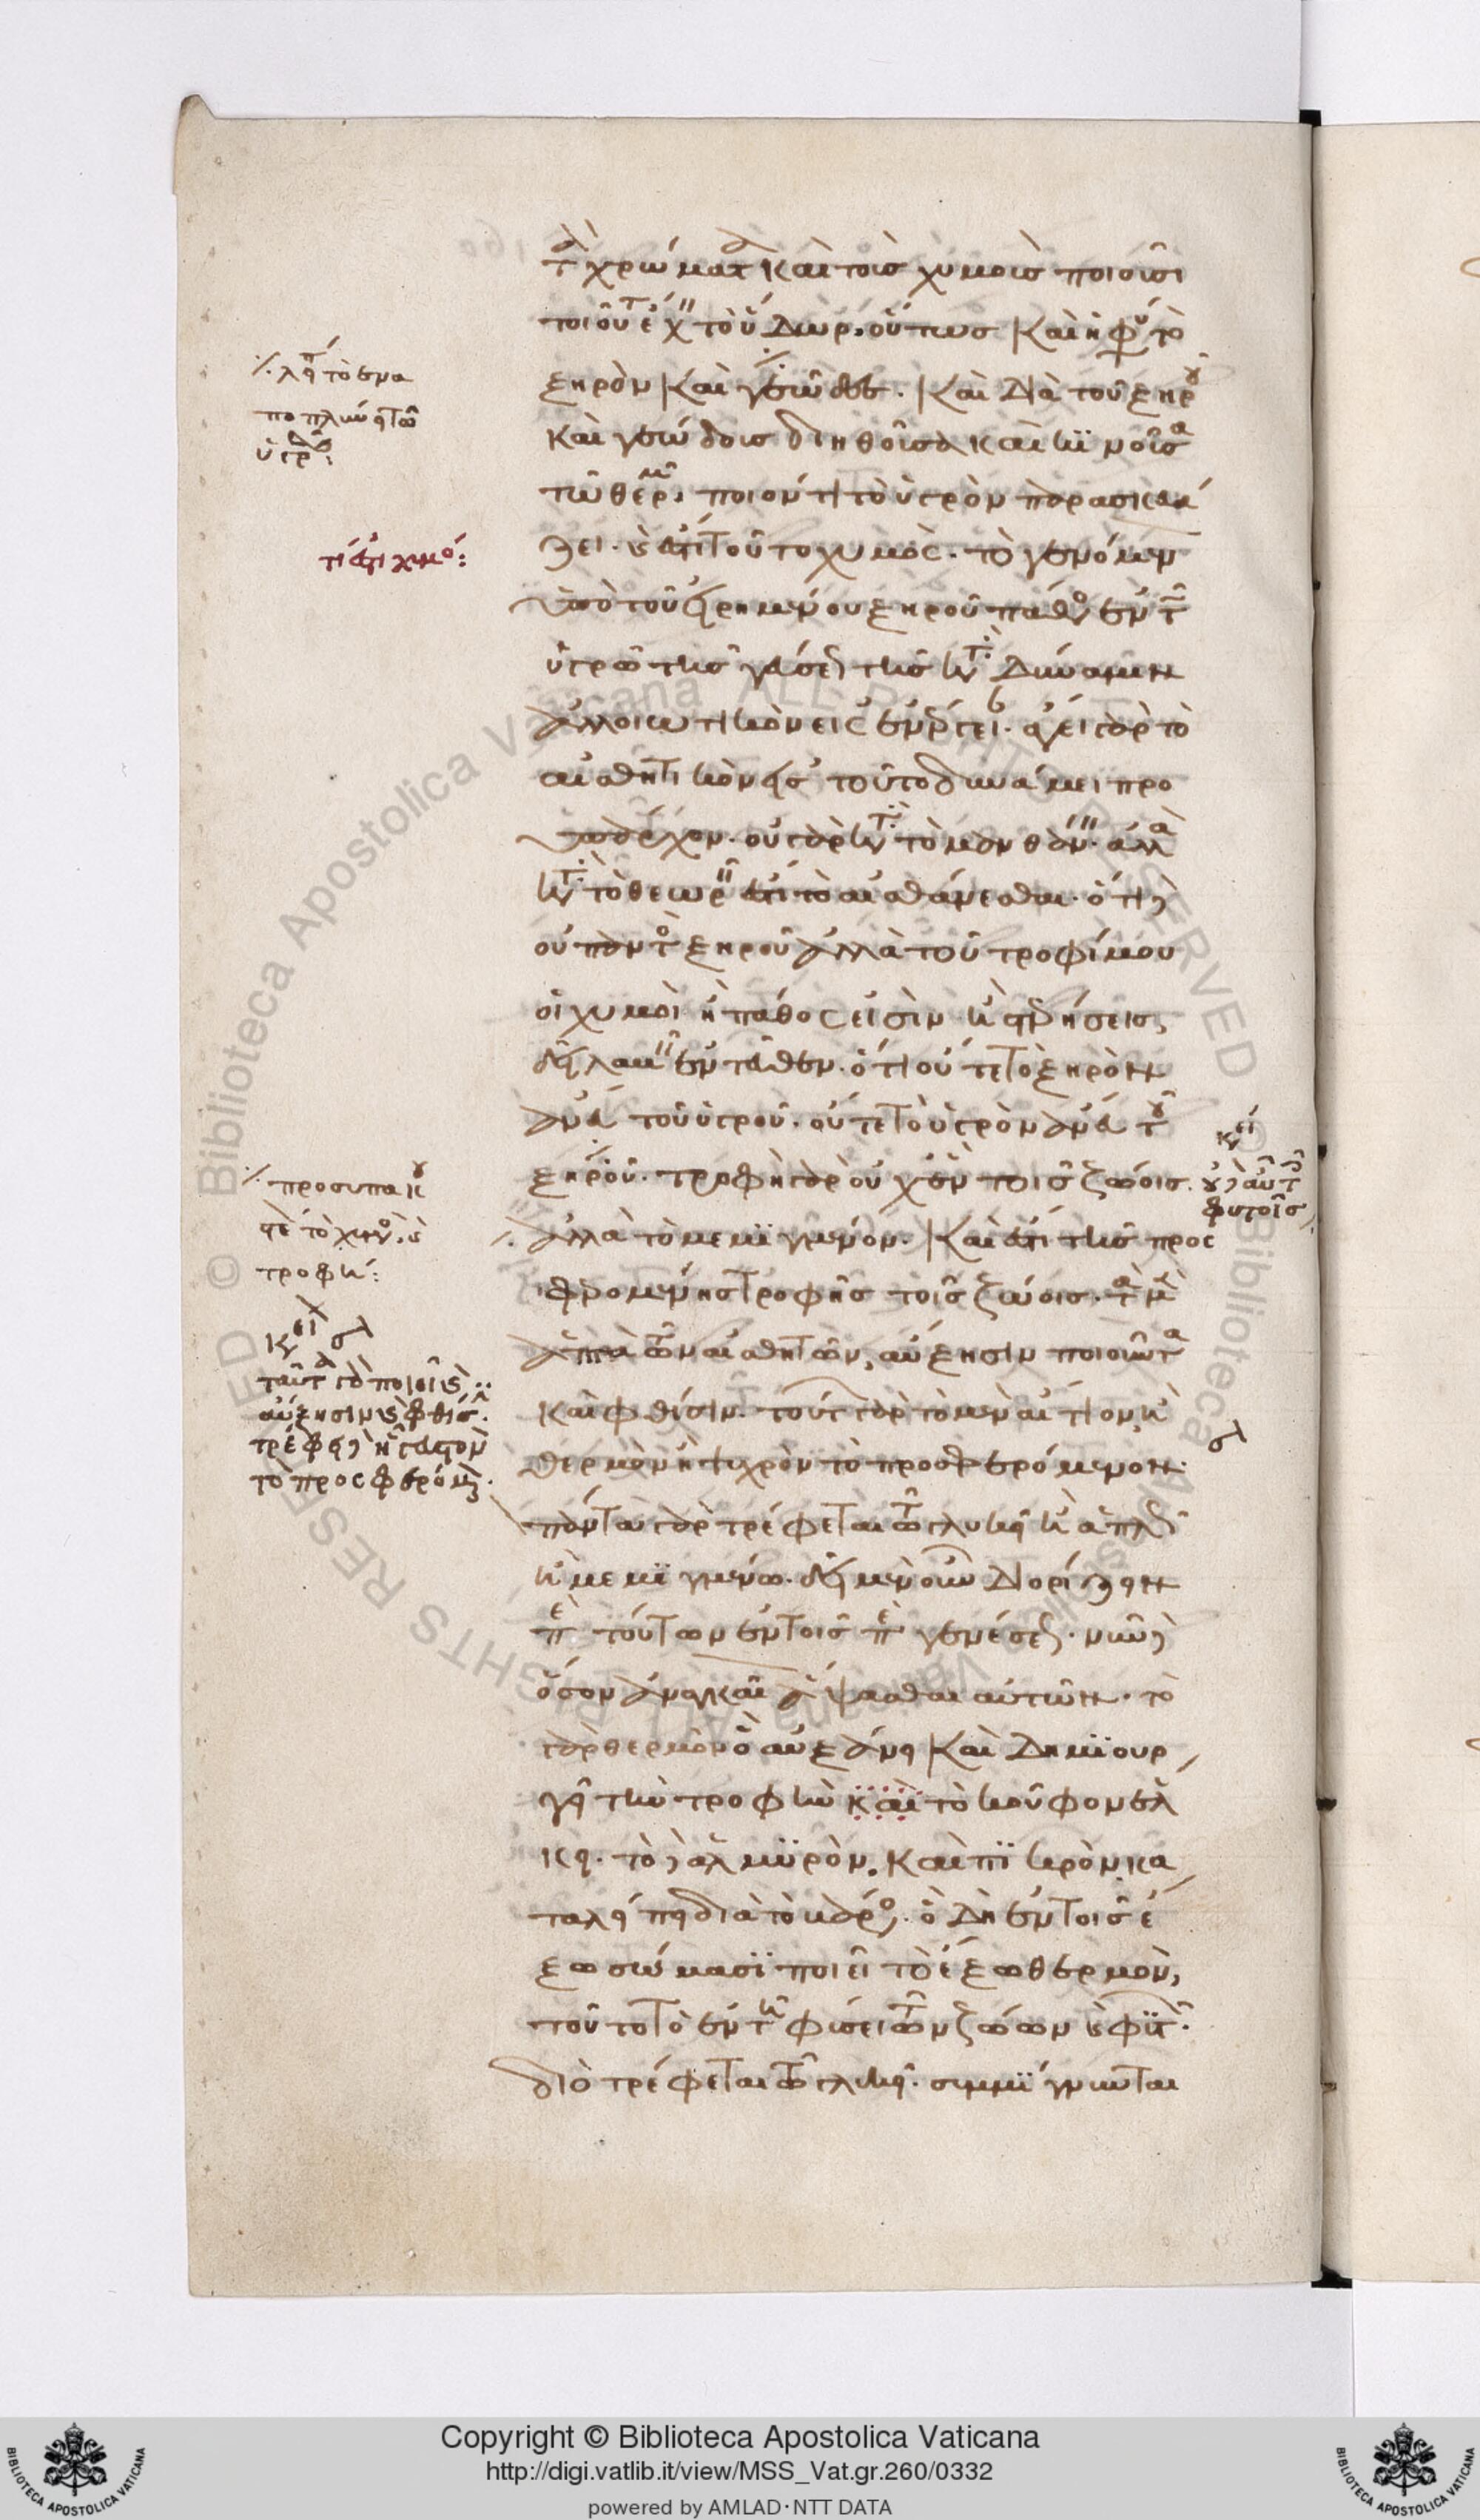 τὰ χρώματα καὶ τοὺς χυμοὺς ποιοῦσι
τοιοῦτ ἔχειν τὸ ὕδωρ. οὕτως καὶ ἡ φύσις τὸ
ξηρὸν καὶ γεῶδες. καὶ διὰ τοῦ ξηροῦ
καὶ γεώδους διηθοῦσα καὶ κινοῦσα
τῶ θερμῶ. ποιόν τι τὸ ὑγρὸν παρασκευά
ζει. καὶ ἔστι τοῦτο χυμὸς. τὸ γενόμενον
ὑπὸ τοῦ εἰρημένου ξηροῦ πάθος ἐν τῶ
ὑγρῶ τῆς γεύσεως τῆς κατὰ δύναμιν
ἀλλοιωτικὸν εἰς ἐνέργειαν. ἄγει γὰρ τὸ
αἰσθητικὸν εἰς τοῦτο δυνάμει προ
ϋπάρχον. οὐ γὰρ κατὰ τὸ μανθάνειν. ἀλλὰ
κατὰ τὸ θεωρεῖν ἐστὶ τὸ αἰσθάνεσθαι. ὅτι δὲ
οὐ παντὸς ξηροῦ ἀλλὰ τοῦ τροφίμου
οἱ χυμοὶ ἢ πάθος εἰσὶν ἢ στέρησις,
δεῖ λαβεῖν ἐντεῦθεν. ὅτι οὔτε τὸ ξηρὸν
ἄνευ τοῦ ὑγροῦ. οὔτε τὸ ὑγρὸν ἄνευ τοῦ
ξηροῦ. τροφὴ γὰρ οὐχ ἓν τοῖς ζώοις.
ἀλλὰ τὸ μεμϊγμένον. καὶ ἔστι τῆς προσ
φερομένης τροφῆς τοῖς ζώοις. τὰ μὲν
ἁπτὰ τῶν αἰσθητῶν, αὔξησιν ποιοῦντα
καὶ φθίσιν. τούτων γὰρ τὸ μὲν αἴτιον, ἢ
θερμὸν ἢ ψυχρὸν τὸ προσφερόμενον.
πάντα γὰρ τρέφεται τῶ γλυκεῖ ἢ ἁπλῶς
ἢ μεμϊγμένω. δεῖ μὲν οὖν διορίζειν
περὶ τούτων ἐν τοῖς περὶ γενέσεως. νῦν δὲ
ὅσον ἀναγκαῖον ἅψασθαι αὐτῶν. τὸ
γὰρ θερμὸν αὐξάνει καὶ δημϊουρ
γεῖ τὴν τροφὴν καὶ τὸ κοῦφον ἕλ
κει. τὸ δὲ ἁλμϋρὸν. καὶ πϊκρὸν κα
ταλείπει διὰ τὸ βάρος. ὃ δὴ ἐν τοῖς ἔ
ξω σώμασϊ ποιεῖ τὸ ἔξω θερμὸν,
τοῦτο τὸ ἐν τῆ φύσει τῶν ζώων καὶ φϋτῶν.
διὸ τρέφεται τῶ γλυκεῖ. συμμϊγνυνται
λείπει τὸ ἐνα
ποπλύνει τῶ
ὑγρῶ:
τί ἐστι χυμός:
προσυπακου
τροφή:
κείμενον
ταῦτα γὰρ ποιεῖ καὶ
αὔξησιν καὶ φθίσιν.
τὸ προσφερόμενον.
φυτοῖς